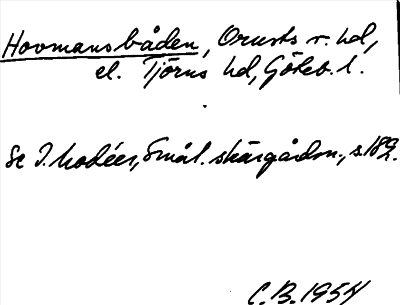 Hovmansbåden, Orusts v. hd,
el. Tjörns hd, Göteb. l.
Se I. Modéer, Smål. skärgårdsn., s. 189.
C.B. 1954